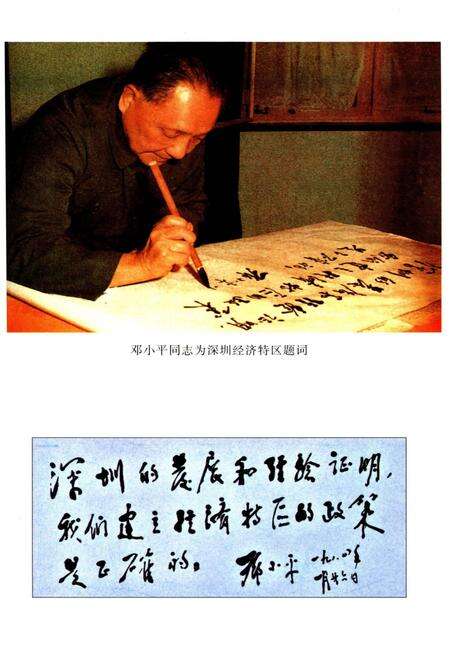 邓小平同志为深圳经济特区题词
深圳的发展和经验证明，
我们建立经济特区的政策
是正确的。
邓小平
一九八四年
一月廿六日